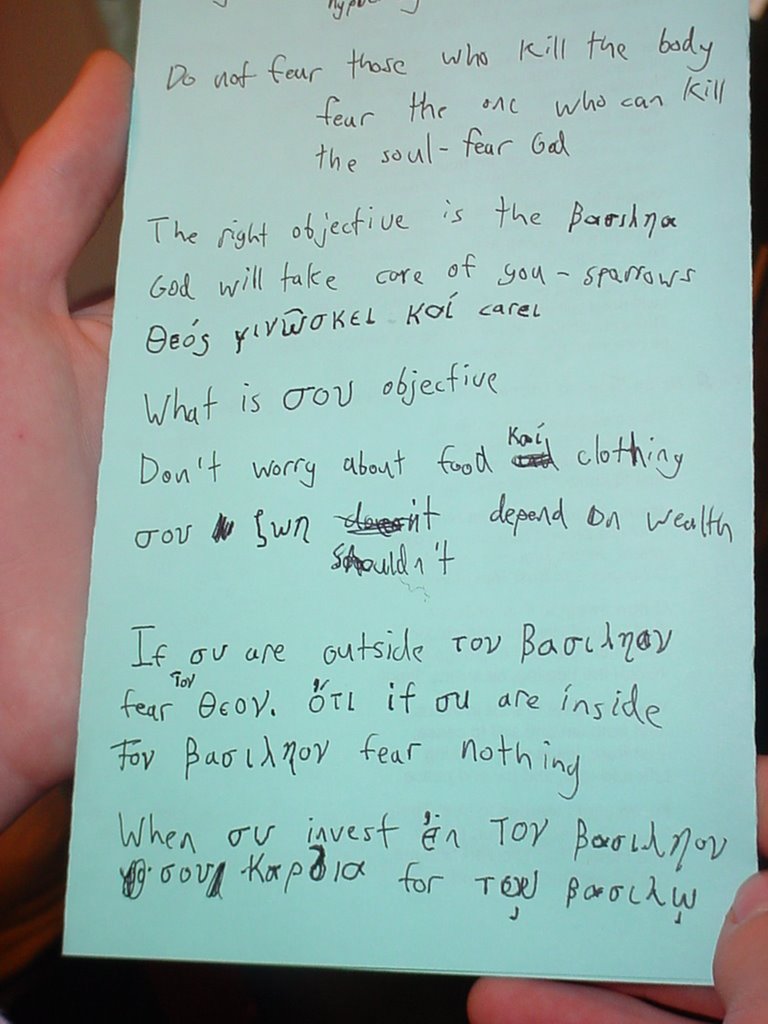 Do not fear those who kill the body
fear the one who can kill
the soul - fear God
The right objective is the βασιληα
God will take care of you - sparrows
Θεός γινῶσκει καί cares
What is σου objective
Don't worry about food καί clothing
σου ζωη shouldn't depend on wealth
If συ are outside τον βασιληον
fear τον Θεον. ὅτι if συ are inside
τον βασιληον fear nothing
When συ invest ἐν τον βασιληον
σου καρδια for τῳ βασιλῳ